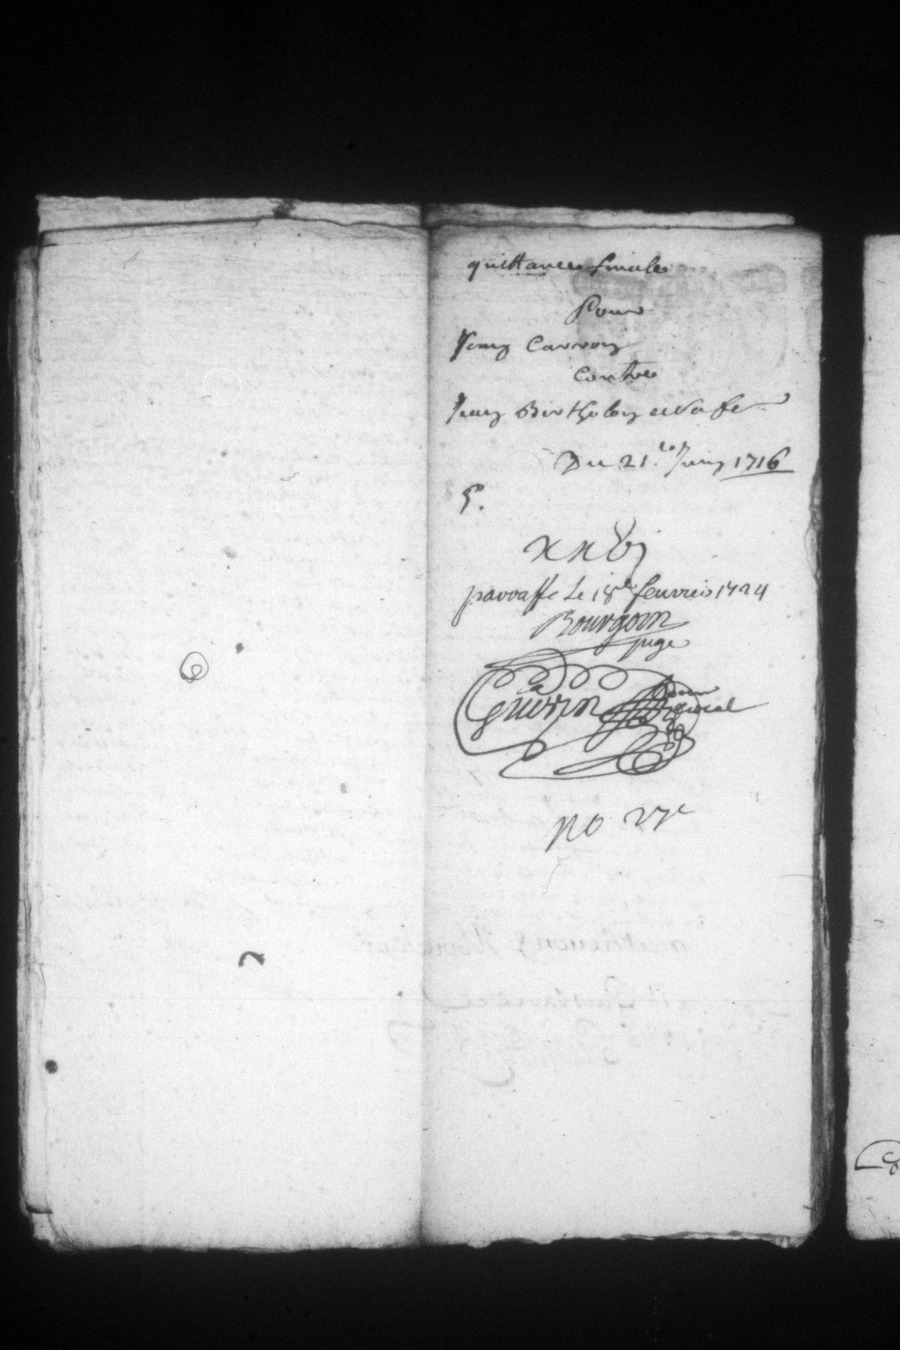 quittance finale
Pour
Jean Carron
Contre
Jean Bertheloy et sa fe
Du 21.e Juin 1716
xxvi
paraffé Le 18e feuvrier 1724
Bourgoin
juge
Guerrin
no 27e